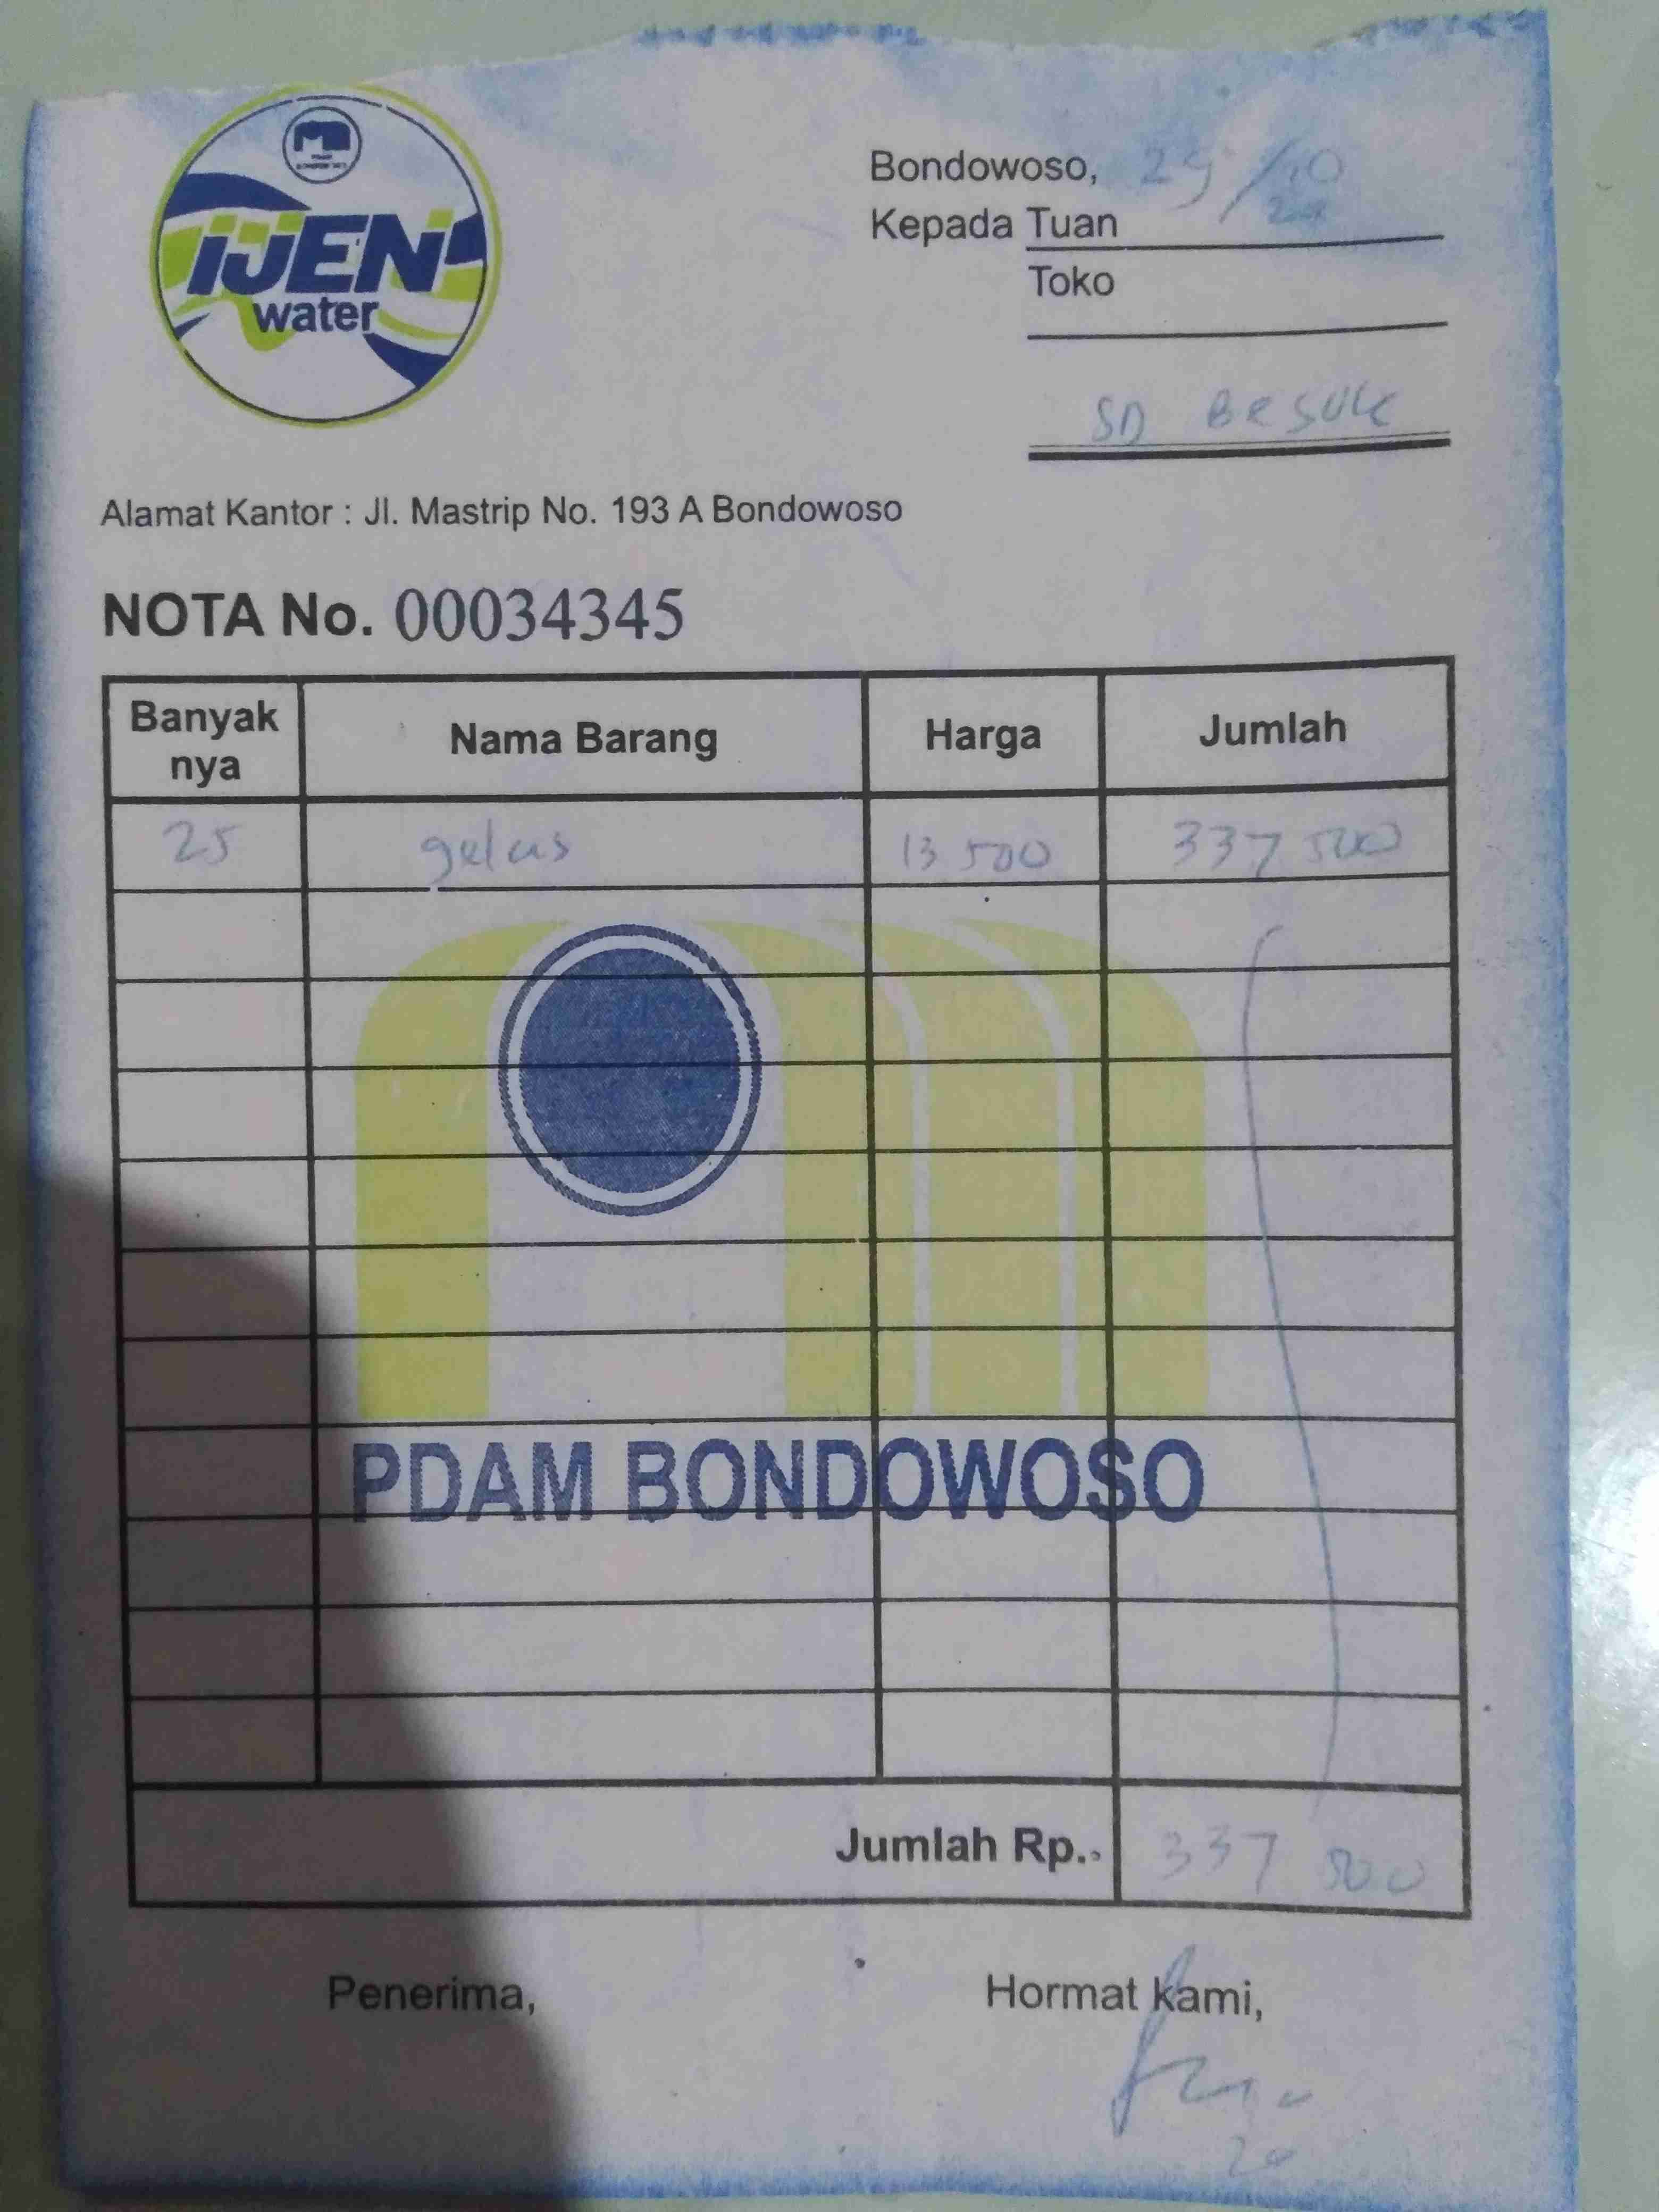 iJEN
water
Bondowoso, 29/10
Kepada Tuan
Toko
SD BESUK
Alamat Kantor : Jl. Mastrip No. 193 A Bondowoso
NOTA No. 00034345
Banyak nya Nama Barang Harga Jumlah
25 gelas 13 500 337 500
PDAM BONDOWOSO
Jumlah Rp.. 337 500
Penerima, Hormat kami,